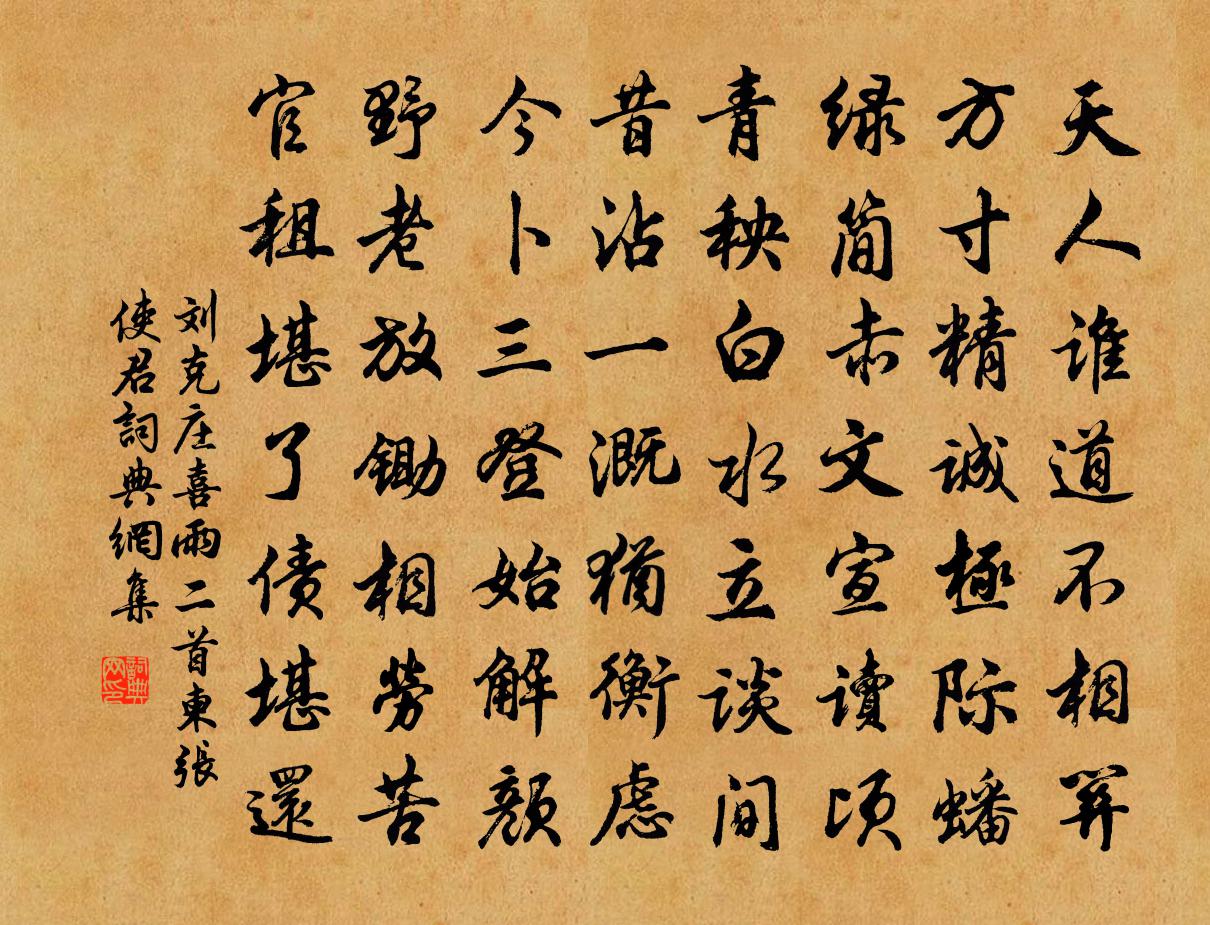 天人谁道不相関
方寸精诚極际蟠
绿简赤文宣讀顷
青秧白水立谈间
昔沾一溉猶衡虑
今卜三登始解颜
野老放锄相勞苦
官租堪了债堪還
刘克庄喜雨二首東張
使君詞典網集
詞典网印